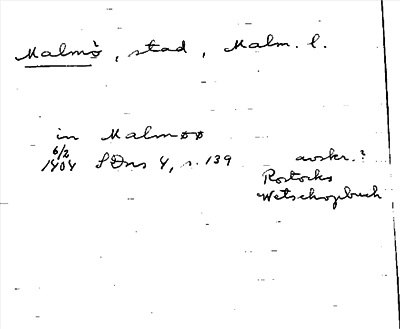 Malmö, stad, Malm. l.
in Malmøø
6/2
1404 SDns 4, s. 139 avskr.?
Rostocks
Wetschopbuch